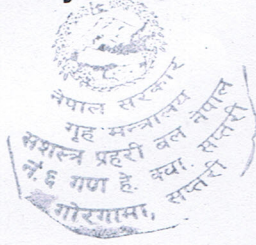 नेपाल सरकार
गृह मन्त्रालय
सशस्त्र प्रहरी बल नेपाल
नं. ६ गण हे. क्वा. सप्तरी
गोरगामा, सप्तरी